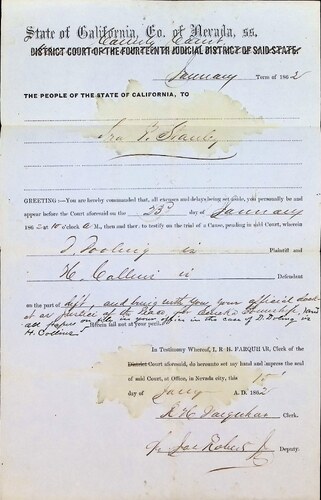 State of California, Co. of Nevada, ss.
County Court
DISTRICT COURT OF THE FOURTEENTH JUDICIAL DISTRICT OF SAID STATE.
January Term of 1862
THE PEOPLE OF THE STATE OF CALIFORNIA, TO
Ira E. Stanley
GREETING:—You are hereby commanded, that, all excuses and delays being set aside, you personally be and
appear before the Court aforesaid on the 23d day of January
1862 at 10 o'clock A M., then and there to testify on the trial of a Cause, pending in said Court, wherein
D. Dooling is Plaintiff and
H. Collins is Defendant
on the part of deft. and bring with you your official docket
as justice of the Peace for Eureka Township, and
all papers on file in your office in the case of D. Dooling vs
H. Collins Herein fail not at your peril.
In Testimony Whereof, I, R H. FARQUHAR, Clerk of the
District Court aforesaid, do hereunto set my hand and impress the seal
of said Court, at Office, in Nevada city, this
day of Jany A. D. 1862
R. H. Farquhar Clerk.
Deputy.